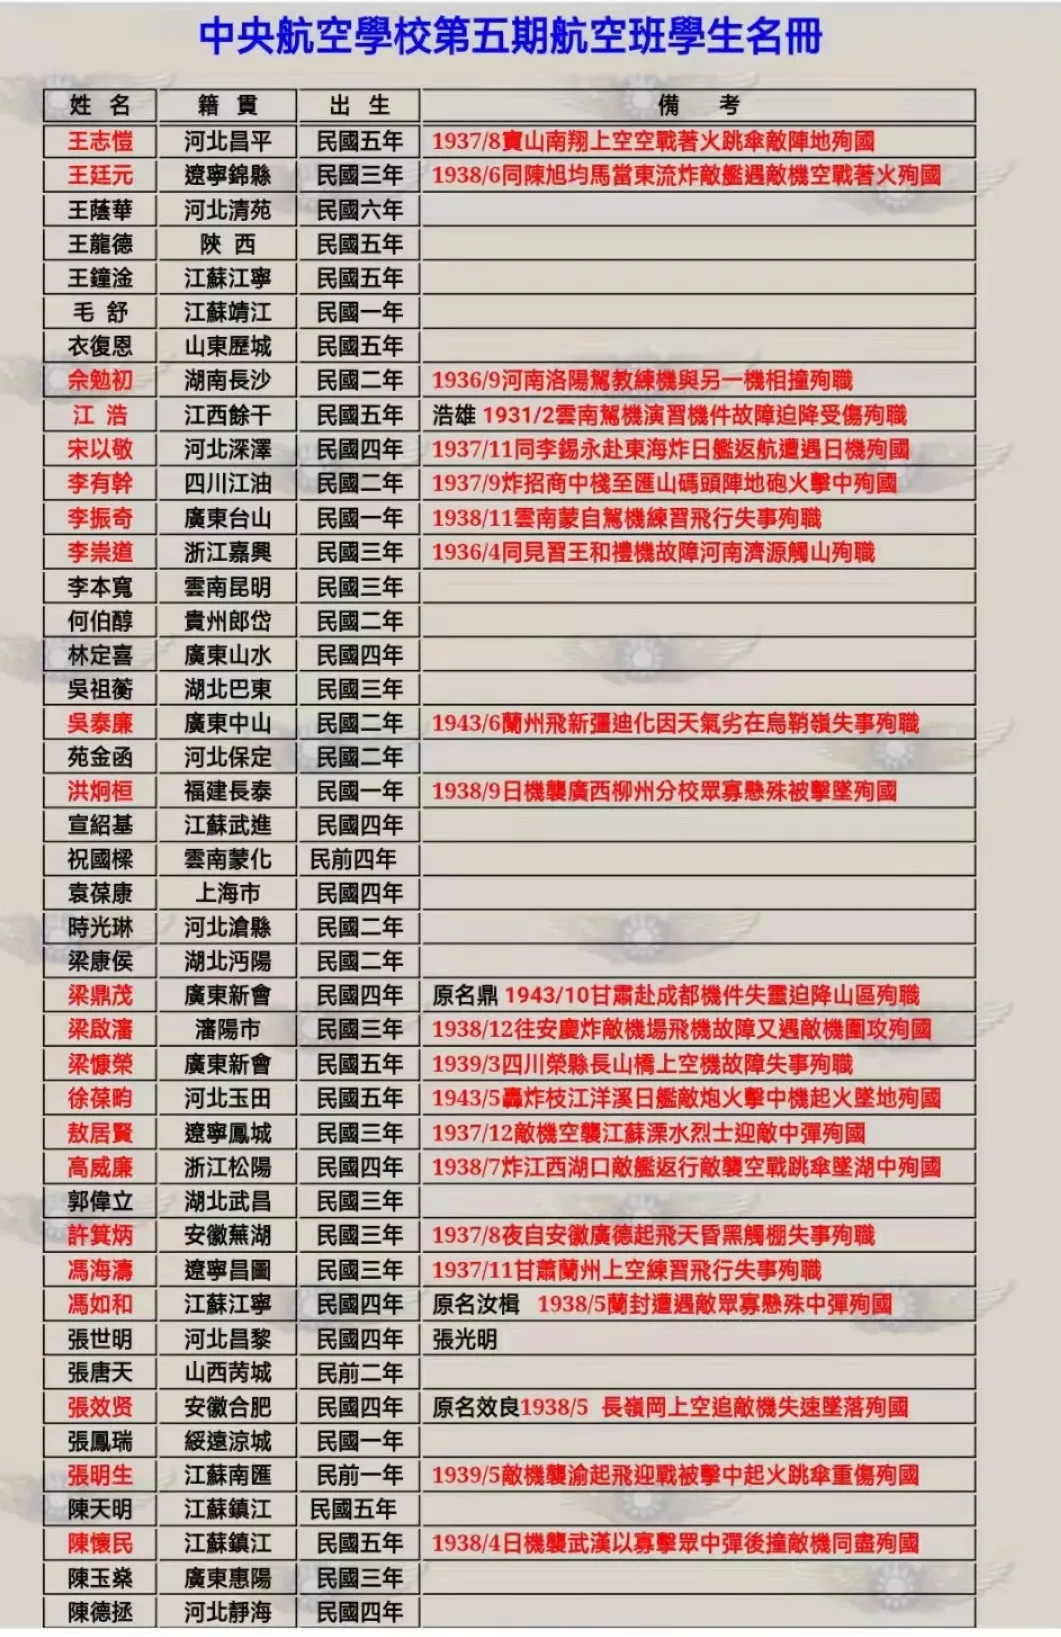 中央航空學校第五期航空班學生名冊
姓 名 籍 貫 出 生 備 考
王志愷 河北昌平 民國五年 1937/8寶山南翔上空空戰著火跳傘敵陣地殉國
王廷元 遼寧錦縣 民國三年 1938/6同陳旭均馬當東流炸敵艦遇敵機空戰著火殉國
王蔭華 河北清苑 民國六年
王龍德 陝 西 民國五年
王鐘淦 江蘇江寧 民國五年
毛 舒 江蘇靖江 民國一年
衣復恩 山東歷城 民國五年
佘勉初 湖南長沙 民國二年 1936/9河南洛陽駕教練機與另一機相撞殉職
江 浩 江西餘干 民國五年 浩雄 1931/2雲南駕機演習機件故障迫降受傷殉職
宋以敬 河北深澤 民國四年 1937/11同李錫永赴東海炸日艦返航遭遇日機殉國
李有幹 四川江油 民國二年 1937/9炸招商中棧至匯山碼頭陣地砲火擊中殉國
李振奇 廣東台山 民國一年 1938/11雲南蒙自駕機練習飛行失事殉職
李崇道 浙江嘉興 民國三年 1936/4同見習王和禮機故障河南濟源觸山殉職
李本寬 雲南昆明 民國三年
何伯醇 貴州郎岱 民國二年
林定喜 廣東山水 民國四年
吳祖蘅 湖北巴東 民國三年
吳泰廉 廣東中山 民國二年 1943/6蘭州飛新彊迪化因天氣劣在烏鞘嶺失事殉職
苑金函 河北保定 民國二年
洪炯桓 福建長泰 民國一年 1938/9日機襲廣西柳州分校眾寡懸殊被擊墜殉國
宣紹基 江蘇武進 民國四年
祝國樑 雲南蒙化 民前四年
袁葆康 上海市 民國四年
時光琳 河北滄縣 民國二年
梁康侯 湖北沔陽 民國二年
梁鼎茂 廣東新會 民國四年 原名鼎 1943/10甘肅赴成都機件失靈迫降山區殉職
梁啟瀋 瀋陽市 民國三年 1938/12往安慶炸敵機場飛機故障又遇敵機圍攻殉國
梁慷榮 廣東新會 民國五年 1939/3四川榮縣長山橋上空機故障失事殉職
徐葆畇 河北玉田 民國五年 1943/5轟炸枝江洋溪日艦敵炮火擊中機起火墜地殉國
敖居賢 遼寧鳳城 民國三年 1937/12敵機空襲江蘇溧水烈士迎敵中彈殉國
高威廉 浙江松陽 民國四年 1938/7炸江西湖口敵艦返行敵襲空戰跳傘墜湖中殉國
郭偉立 湖北武昌 民國三年
許箕炳 安徽蕪湖 民國三年 1937/8夜自安徽廣德起飛天昏黑觸棚失事殉職
馮海濤 遼寧昌圖 民國三年 1937/11甘蕭蘭州上空練習飛行失事殉職
馮如和 江蘇江寧 民國四年 原名汝楫 1938/5蘭封遭遇敵眾寡懸殊中彈殉國
張世明 河北昌黎 民國四年 張光明
張唐天 山西芮城 民前二年
張效贤 安徽合肥 民國四年 原名效良1938/5 長嶺岡上空追敵機失速墜落殉國
張鳳瑞 綏遠涼城 民國一年
張明生 江蘇南匯 民前一年 1939/5敵機襲渝起飛迎戰被擊中起火跳傘重傷殉國
陳天明 江蘇鎮江 民國五年
陳懷民 江蘇鎮江 民國五年 1938/4日機襲武漢以寡擊眾中彈後撞敵機同盡殉國
陳玉燊 廣東惠陽 民國三年
陳德拯 河北靜海 民國四年